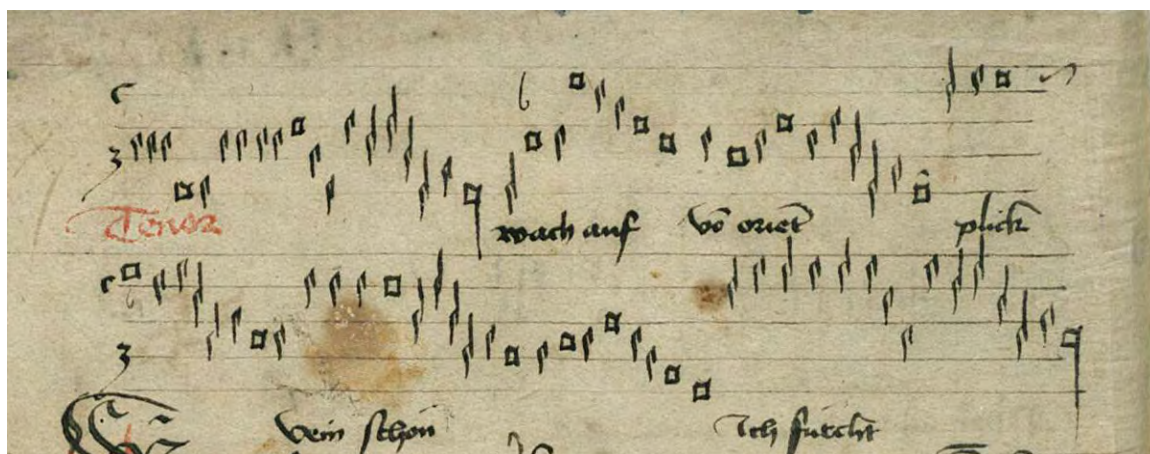 Tenor wach auf vō oriēt plick
Dein schon Ich furcht